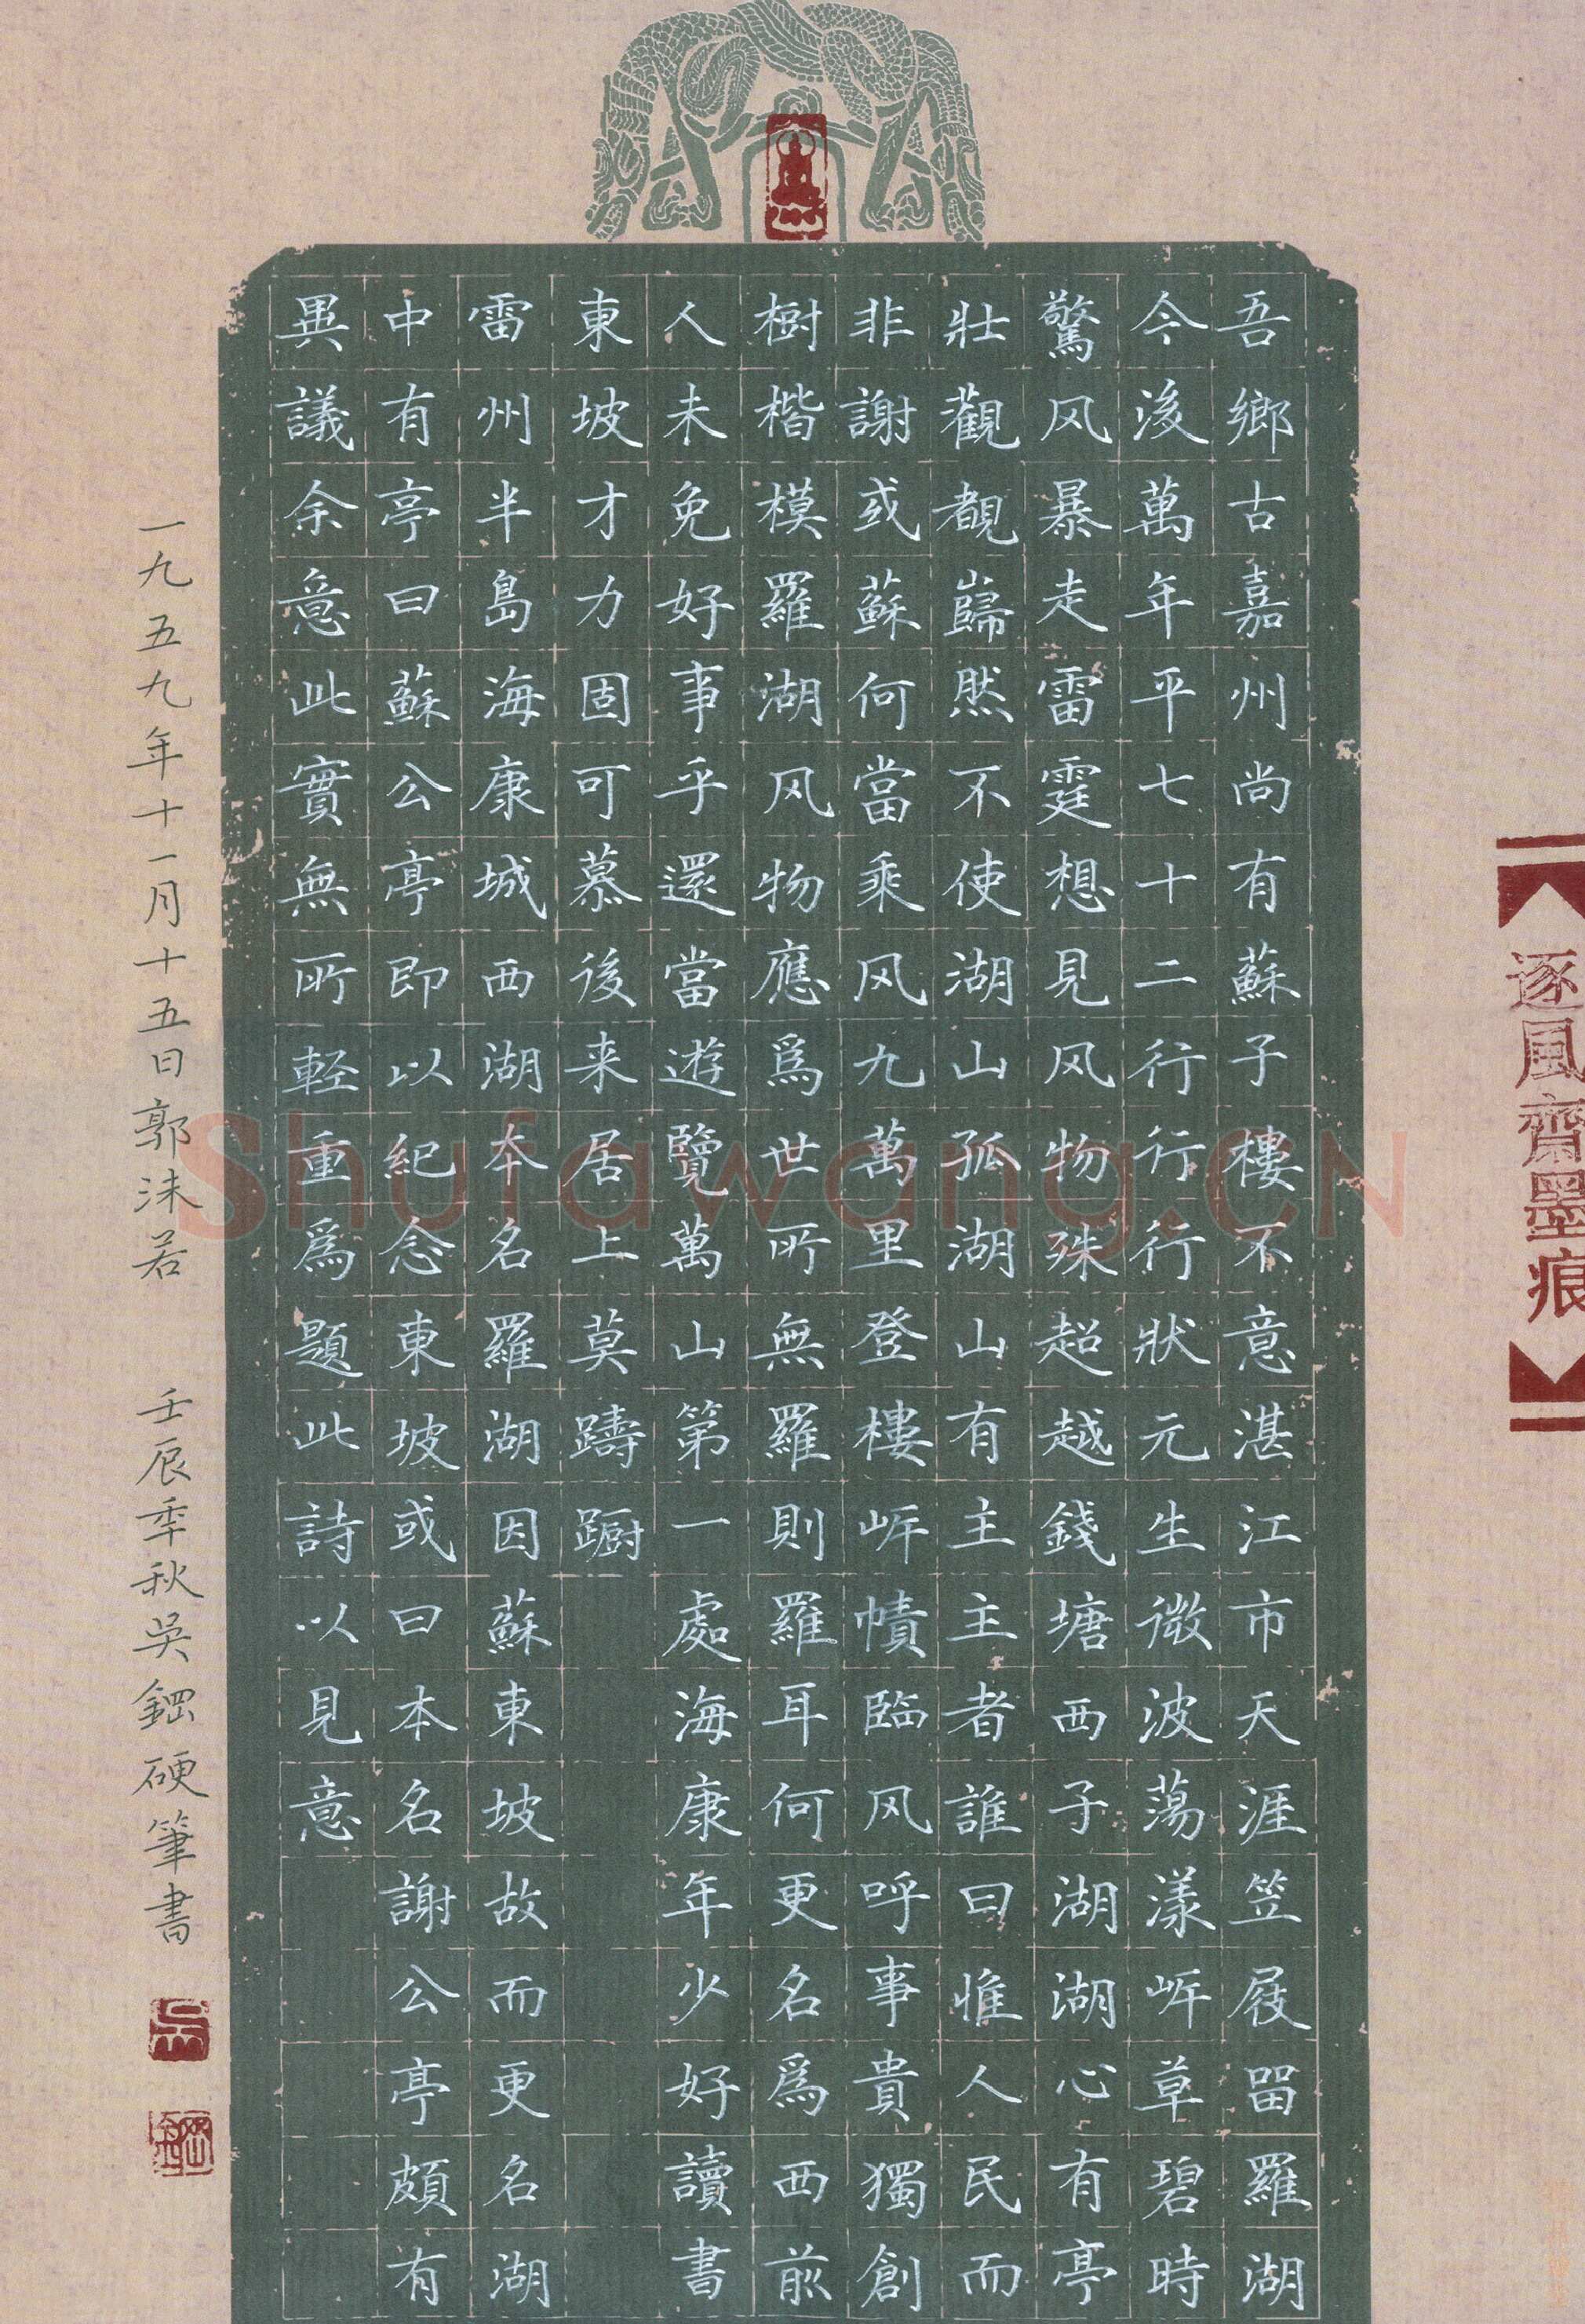 吾鄉古嘉州尚有蘇子樓不意湛江市天涯笠屐留羅湖
今後萬年平七十二行行行狀元生微波蕩漾岍草碧時
驚风暴走雷霆想見风物殊超越錢塘西子湖湖心有亭
壯觀覩巋然不使湖山孤湖山有主主者誰曰惟人民而
非謝或蘇何當乘风九萬里登樓岍幘臨风呼事貴獨創
樹楷模羅湖风物應為世所無羅則羅耳何更名為西前
人未免好事乎還當遊覽萬山第一處海康年少好讀書
東坡才力固可慕後来居上莫躊躕
雷州半島海康城西湖本名羅湖因蘇東坡故而更名西湖
中有亭曰蘇公亭亭即以紀念東坡或曰本名謝公亭頗有
異議余意此實無所輕重為題此詩以見意
一九五九年十一月十五日郭沫若 壬辰季秋吳鋼硬筆書
逐風齋墨痕
Shufawang.CN